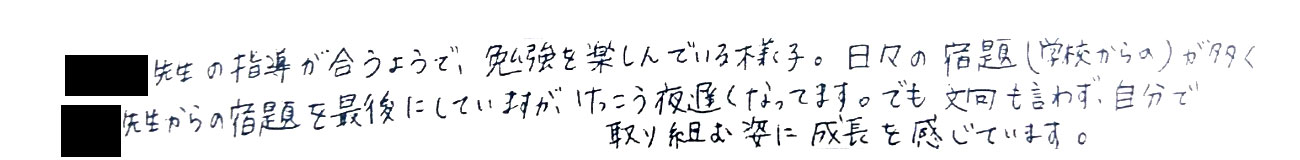 先生の指導が合うようで、勉強を楽しんでいる様子。日々の宿題(学校からの)が多く
先生からの宿題を最後にしていますが、けっこう夜遅くなってます。でも文句も言わず、自分で
取り組む姿に成長を感じています。